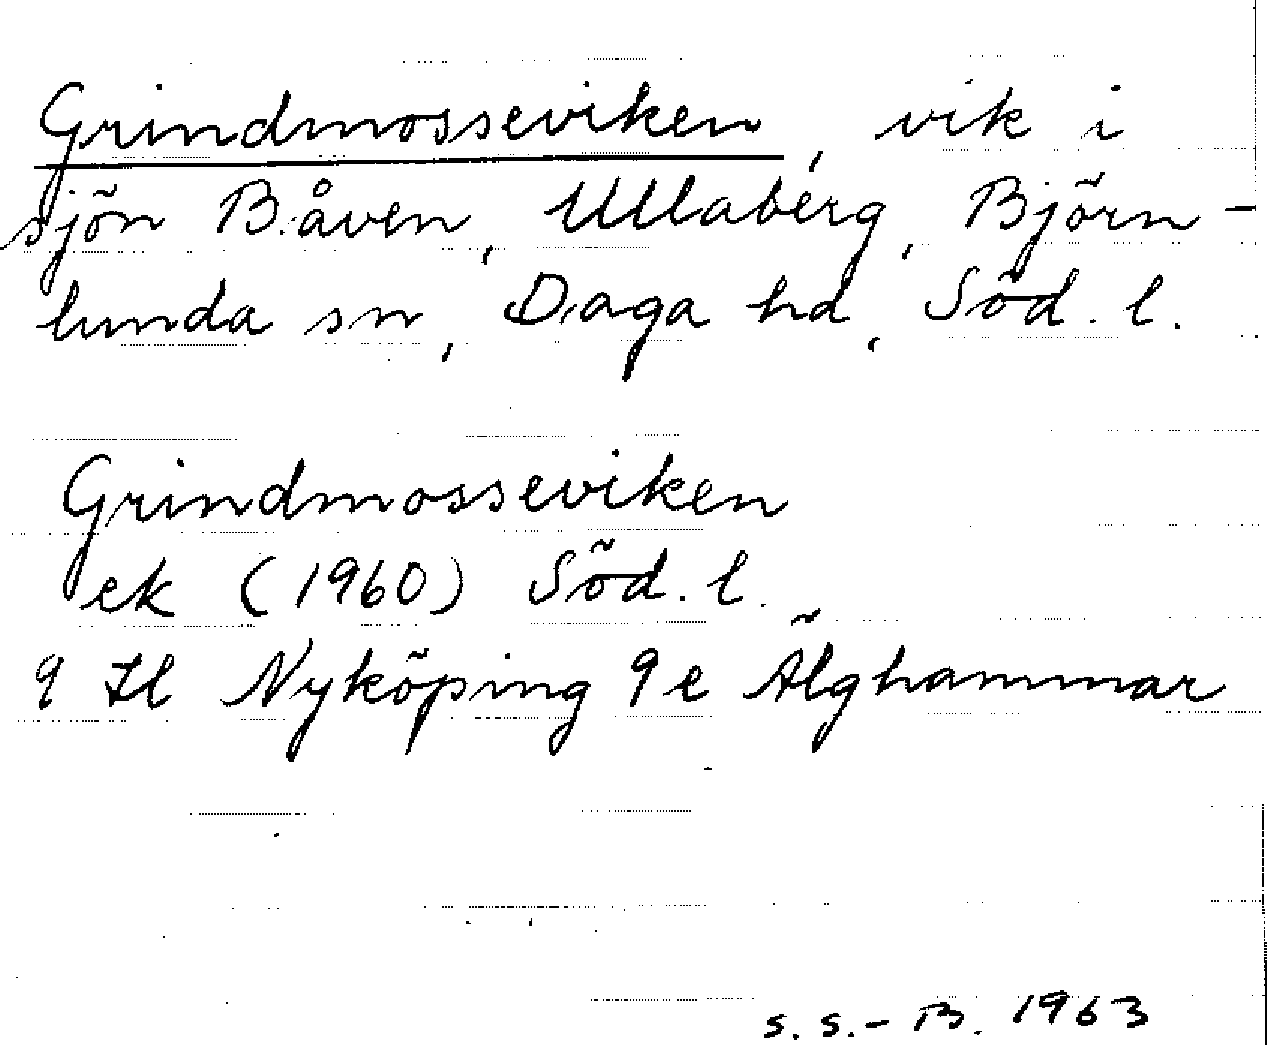 Grindmosseviken, vik i
sjön Båven, Ullaberg, Björn-
lunda sn, Daga hd, Söd. l.
Grindmosseviken
ek (1960) Söd. l.
9 H Nyköping 9e Älghammar
s. s.- B. 1963